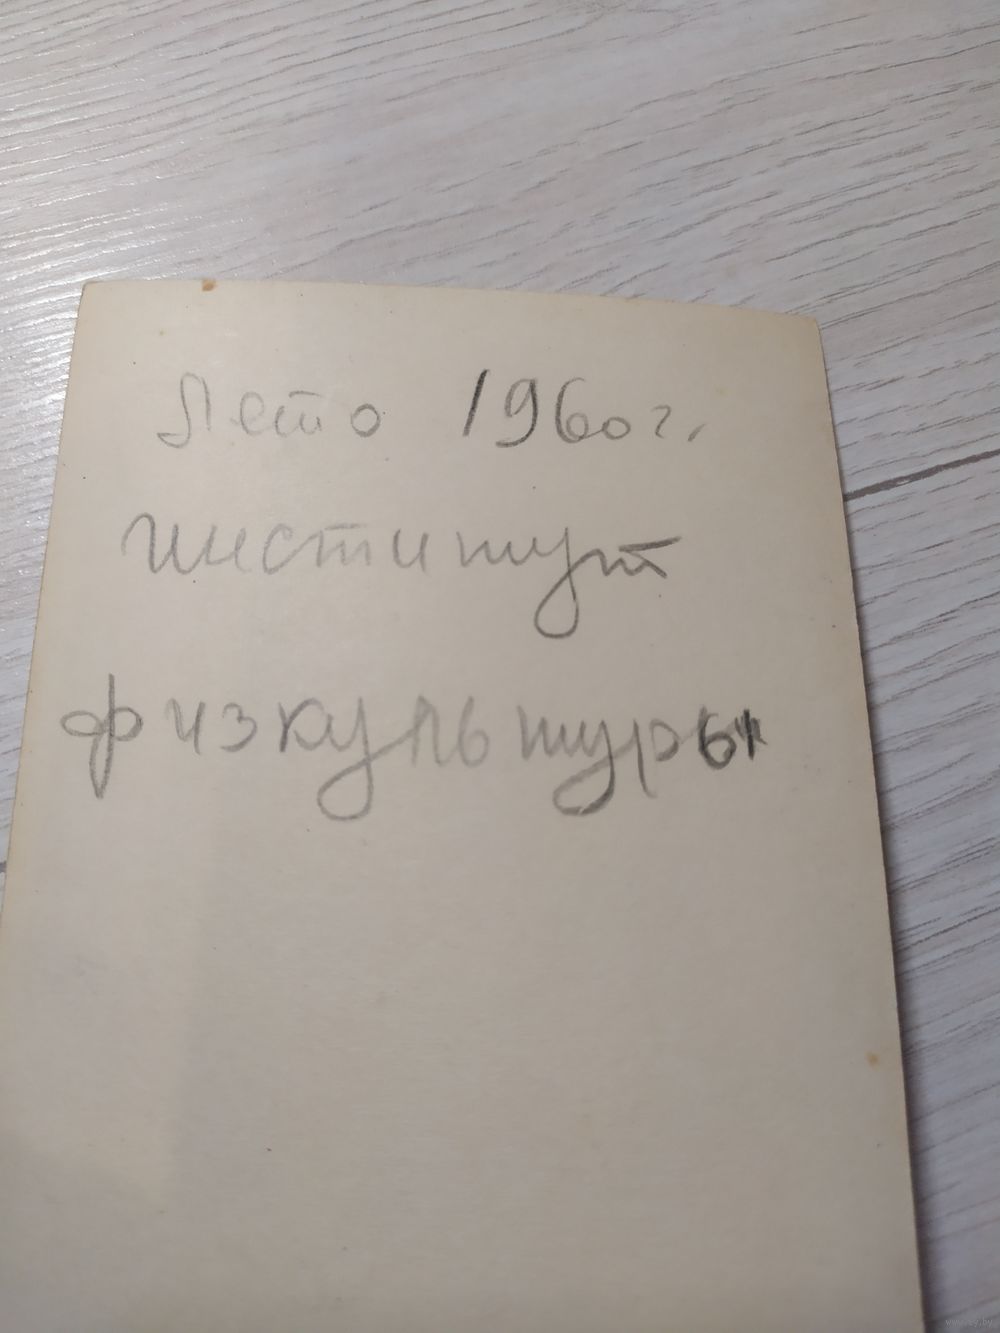 Лето 1960 г.
институт
физкультуры
www.ay.by